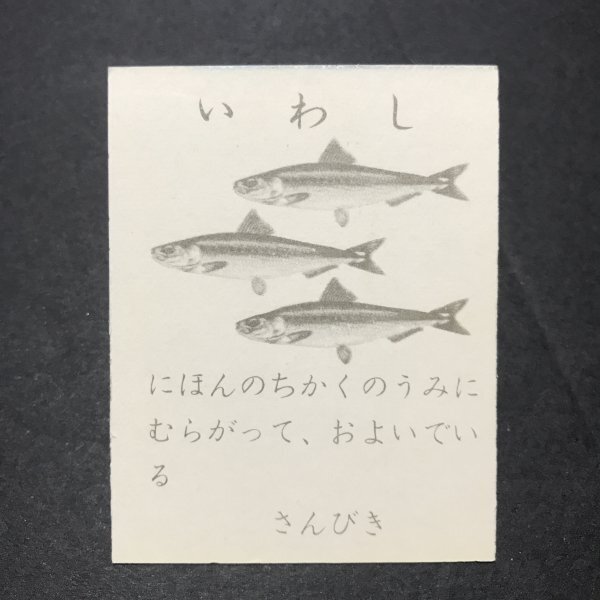 いわし
にほんのちかくのうみに
むらがって、およいでい
る
さんびき